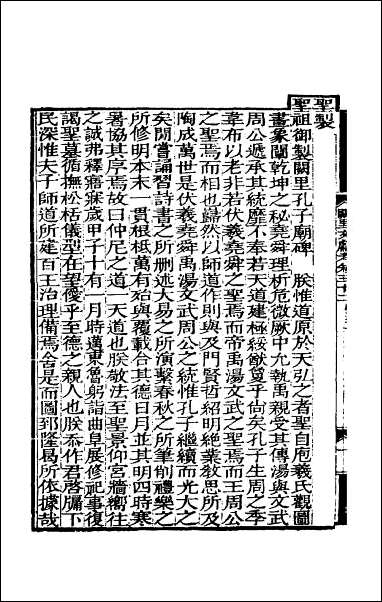 聖製
聖祖御製闕里孔子廟碑　朕惟道原於天弘之者聖自庖羲氏觀圖
畫象闡乾坤之秘堯舜理析危微厥中允執禹親受其傳湯與文武
周公遞承其統靡不奉若天道建極綏猷敻乎尙矣孔子生周之季
韋布以老非若伏羲堯舜之聖焉而帝禹湯文武之聖焉而王周公
之聖焉而相也巋然以師道作則與及門賢哲紹明絶業敎思所及
陶成萬世是伏羲堯舜禹湯文武周公之統惟孔子繼續而光大之
矣間嘗誦習詩書之所刪述大易之所演繫春秋之所筆削禮樂之
所修明本末一貫根柢萬有始與覆載合其德日月並其明四時寒
暑協其序焉故曰仲尼之道一天道也朕敬法至聖景仰宮牆嚮往
之誠弗釋寤寐歲甲子十有一月時邁東魯躬詣曲阜展修祀事復
謁聖墓循撫松栝儀型在望僾乎至德之親人也朕忝作君啓牖下
民深惟夫子師道所建百王治理備焉舍是而圖郅隆曷所依據哉